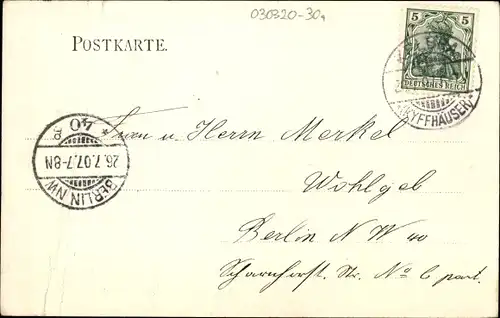 030320-30,
POSTKARTE.
5 5
DEUTSCHES REICH
KYFFHÄUSER
Frau u. Herrn Merkel
Wohlgeb
Berlin N W 40
Scharnhorst Str. No 6 part.
BERLIN NW
26.7.07.7-8N
* 40